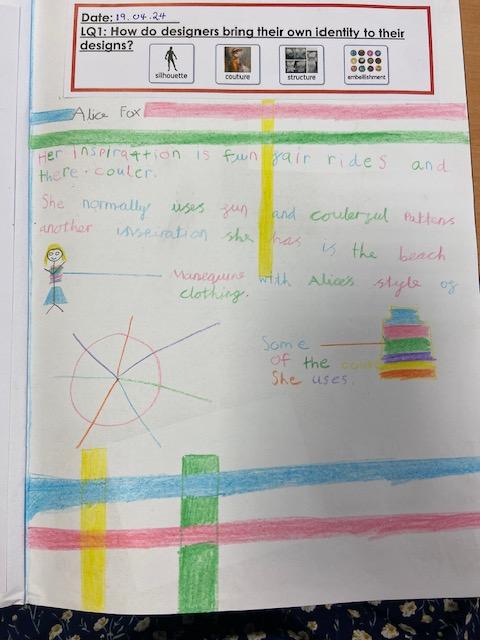 Date: 19.04.24
LQ1: How do designers bring their own identity to their
designs?
silhouette
couture
structure
embellishment
Alice Fox
Her inspiration is fun fair rides and
there couler.
She normally uses fun and coulerful Pattens
another inspiration she has is the beach
Manequine with Alice's style of
clothing.
Some
of the
She uses.